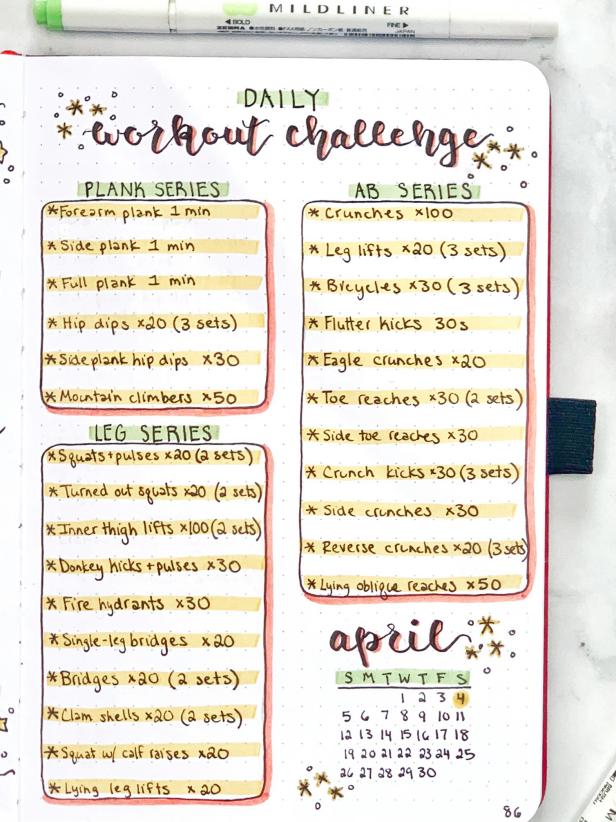 MILDLINER
◀BOLD
FINE▶
ZEBRA
JAPAN
DAILY
workout challenge
PLANK SERIES
*Forearm plank 1 min
*Side plank 1 min
*Full plank 1 min
*Hip dips x20 (3 sets)
*Side plank hip dips x30
*Mountain climbers x50
LEG SERIES
*Squats+pulses x20 (2 sets)
*Turned out squats x20 (2 sets)
*Inner thigh lifts x100 (2 sets)
*Donkey kicks + pulses x30
*Fire hydrants x30
*Single-leg bridges x20
*Bridges x20 (2 sets)
*Clam shells x20 (2 sets)
*Squat w/ calf raises x20
*Lying leg lifts x20
AB SERIES
*Crunches x100
*Leg lifts x20 (3 sets)
*Bicycles x30 (3 sets)
*Flutter kicks 30s
*Eagle crunches x20
*Toe reaches x30 (2 sets)
*Side toe reaches x30
*Crunch kicks x30 (3 sets)
*Side crunches x30
*Reverse crunches x20 (3 sets)
*Lying oblique reaches x50
april
S M T W T F S
1 2 3 4
5 6 7 8 9 10 11
12 13 14 15 16 17 18
19 20 21 22 23 24 25
26 27 28 29 30
86